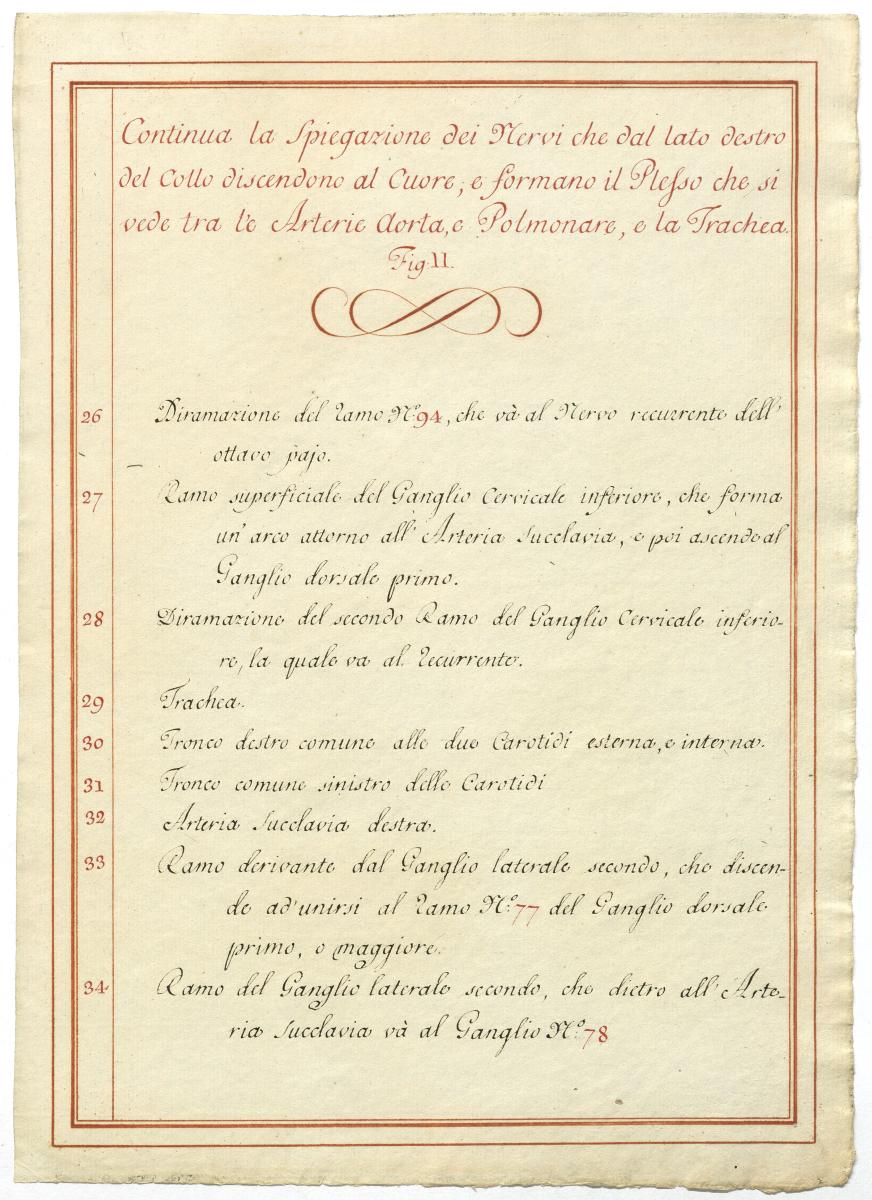 Continua la Spiegazione dei Nervi che dal lato destro
del Collo discendono al Cuore, e formano il Plesso che si
vede tra l'e Arterie Aorta, e Polmonare, e la Trachea.
Fig. II.
26 Diramazione del Ramo N.º 94, che và al Nervo recurrente dell'
ottavo pajo.
27 Ramo superficiale del Ganglio Cervicale inferiore, che forma
un' arco attorno all' Arteria Succlavia, e poi ascende al
Ganglio dorsale primo.
28 Diramazione del secondo Ramo del Ganglio Cervicale inferio-
re, la quale va al Recurrente.
29 Trachea.
30 Tronco destro comune alle due Carotidi esterna, e interna.
31 Tronco comune sinistro delle Carotidi
32 Arteria Succlavia destra.
33 Ramo derivante dal Ganglio laterale secondo, che discen-
de ad'unirsi al Ramo N.º 77 del Ganglio dorsale
primo, o maggiore.
34 Ramo del Ganglio laterale secondo, che dietro all' Arte-
ria Succlavia và al Ganglio N.º 78